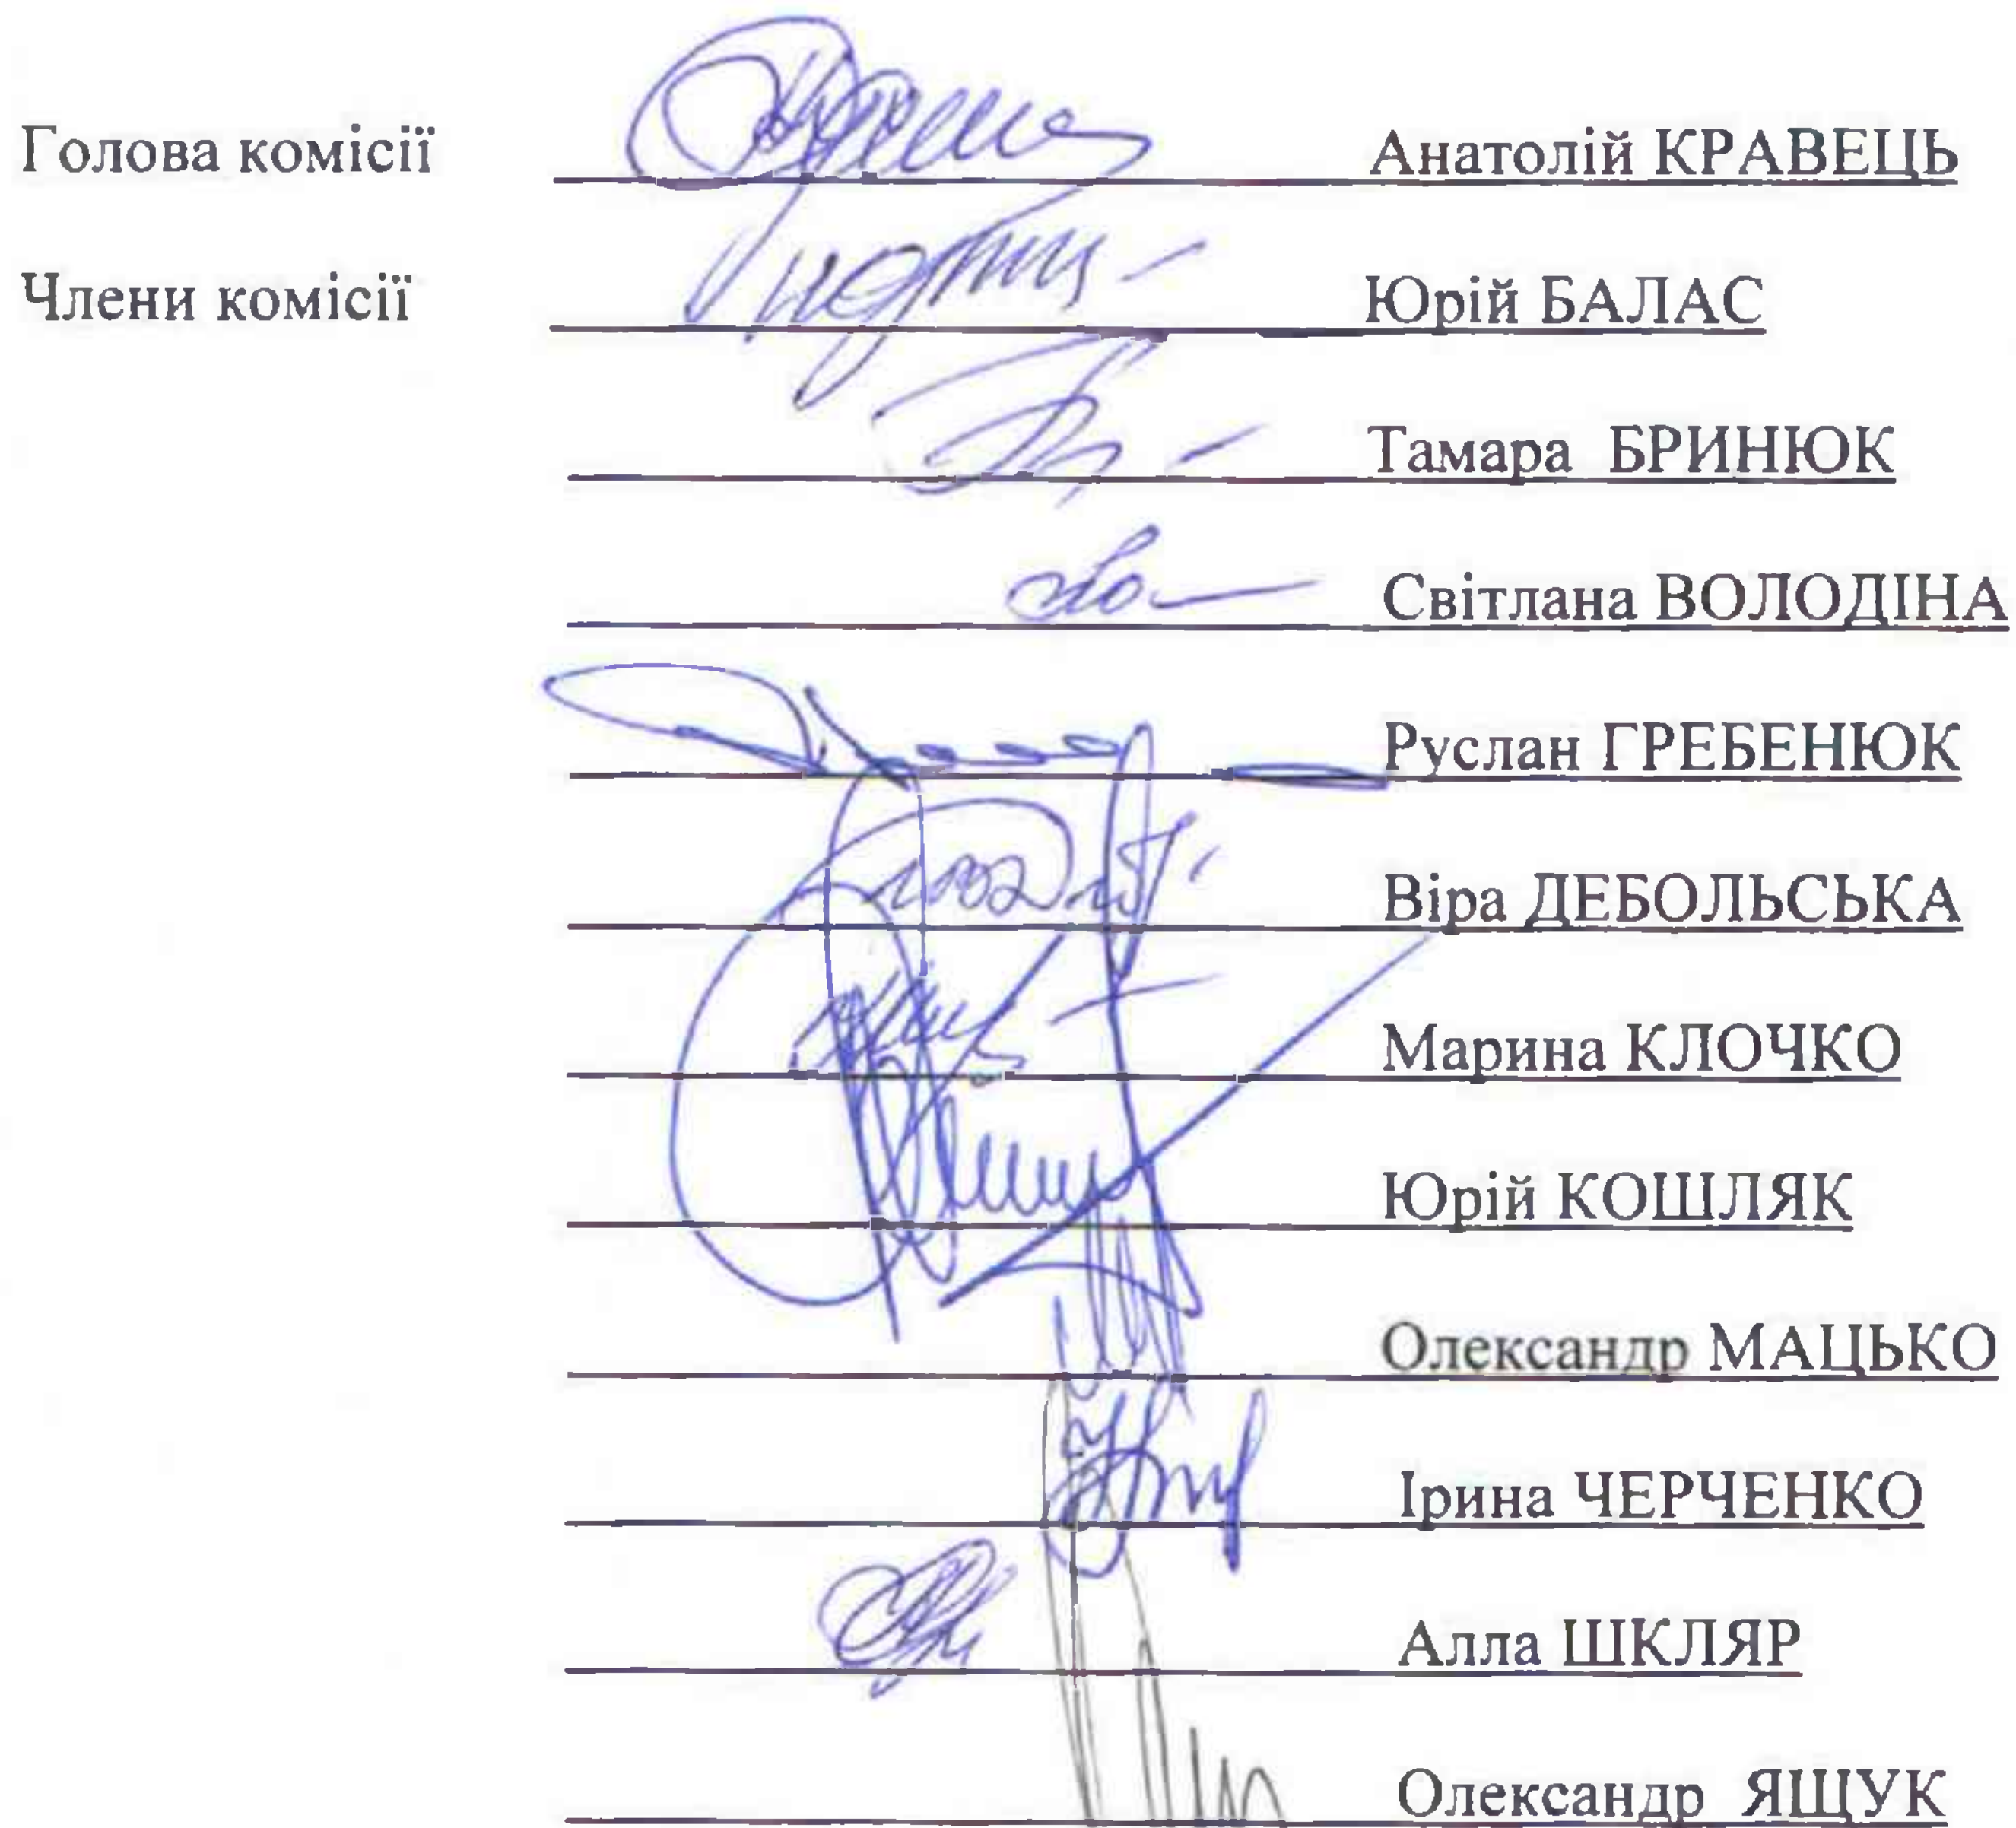 Голова комісії Анатолій КРАВЕЦЬ
Члени комісії Юрій БАЛАС
Тамара БРИНЮК
Світлана ВОЛОДІНА
Руслан ГРЕБЕНЮК
Віра ДЕБОЛЬСЬКА
Марина КЛОЧКО
Юрій КОШЛЯК
Олександр МАЦЬКО
Ірина ЧЕРЧЕНКО
Алла ШКЛЯР
Олександр ЯЩУК